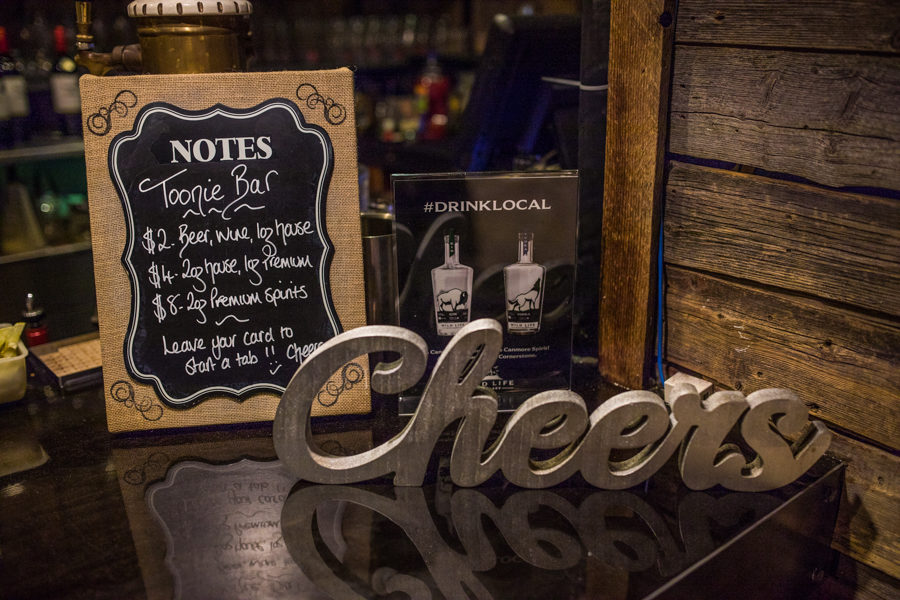 NOTES
Toonie Bar
$2. Beer, Wine, 1oz house
$4 - 2oz house, 1oz Premium
$8 - 2oz Premium spirits
Leave your card to
start a tab !! Cheers
#DRINKLOCAL
WILD LIFE
WILD LIFE
Canmore Spirit
Cornerstone.
LD LIFE
Cheers